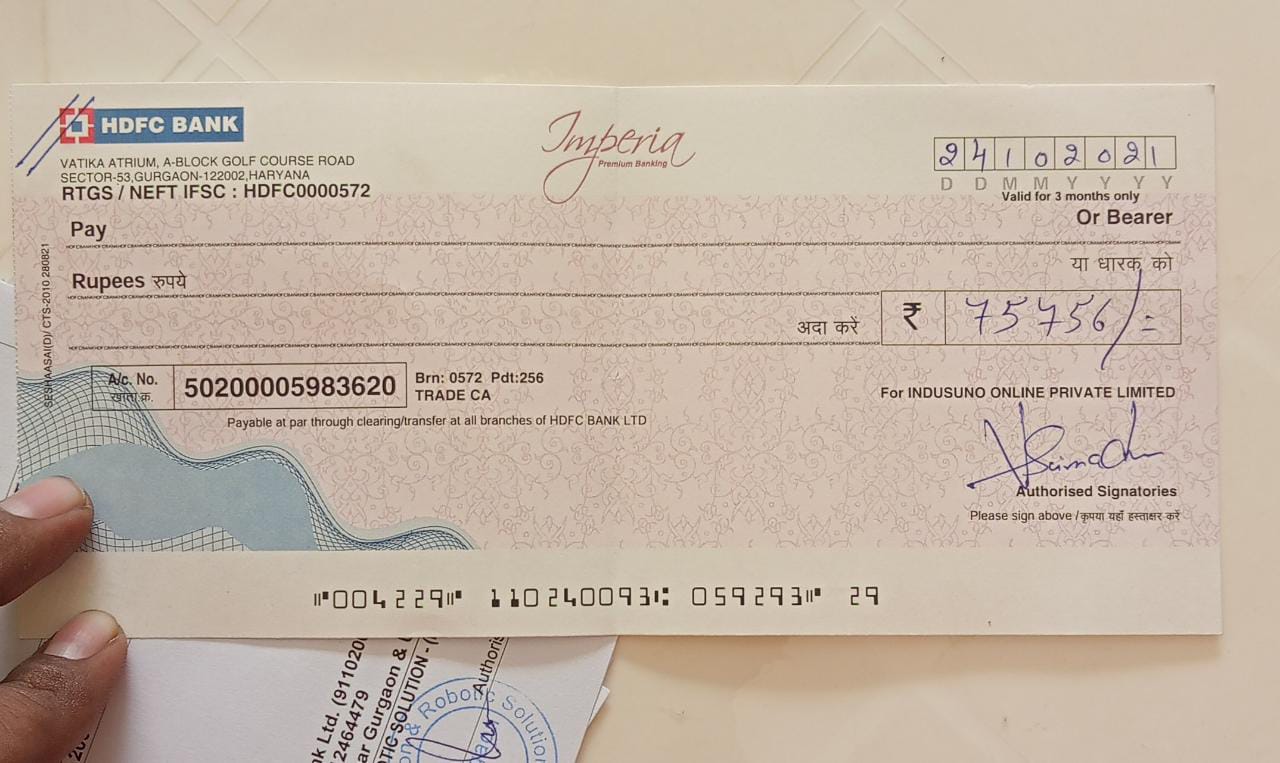 HDFC BANK
VATIKA ATRIUM, A-BLOCK GOLF COURSE ROAD
SECTOR-53,GURGAON-122002,HARYANA
RTGS / NEFT IFSC : HDFC0000572
Imperia
Premium Banking
24102021
D D M M Y Y Y Y
Valid for 3 months only
Pay
Or Bearer
या धारक को
Rupees रुपये
अदा करें
₹ 75756/=
A/c. No.
खाता क्र.
50200005983620
Brn: 0572 Pdt:256
TRADE CA
Payable at par through clearing/transfer at all branches of HDFC BANK LTD
For INDUSUNO ONLINE PRIVATE LIMITED
Authorised Signatories
Please sign above / कृपया यहाँ हस्ताक्षर करें
CTS-2010 280821
⑈004229⑈ 110240093⑆ 059293⑈ 29
nk Ltd. (911020
12464479
ar Gurgaon &
TIC SOLUTION - (
Authoris
on & Robotic Solution